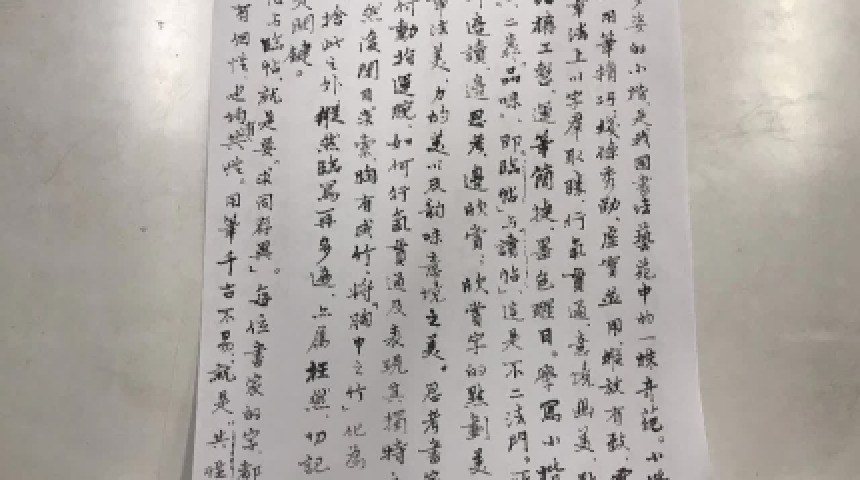 多姿的小楷是我国書法藝苑中的一朵奇葩。小楷
用筆精巧娟秀勁,虛實並用,縱放有致,
章法上以字羣取勝,行氣貫通,意境幽美,點
結構工整,運筆簡捷,墨色耀目。摩寫小楷
二熹"品味",即"臨帖"与"讀帖"這是不二法門。
邊讀,邊思考,邊欣賞,欣賞字的點劃美
章法美,力的美以及韵味意境之美。思考書家
何動指運腕,如何行氣貫通及表現其獨特
然後閉目求索,胸有成竹,將"胸中之竹"化為
捨此之外縱然臨寫再多遍,亦屬枉然,切記
関鍵。
帖与臨帖,就是要"求同存異"。每位書家的字都
有個性,也均共性。用筆千古不易,就是"共性